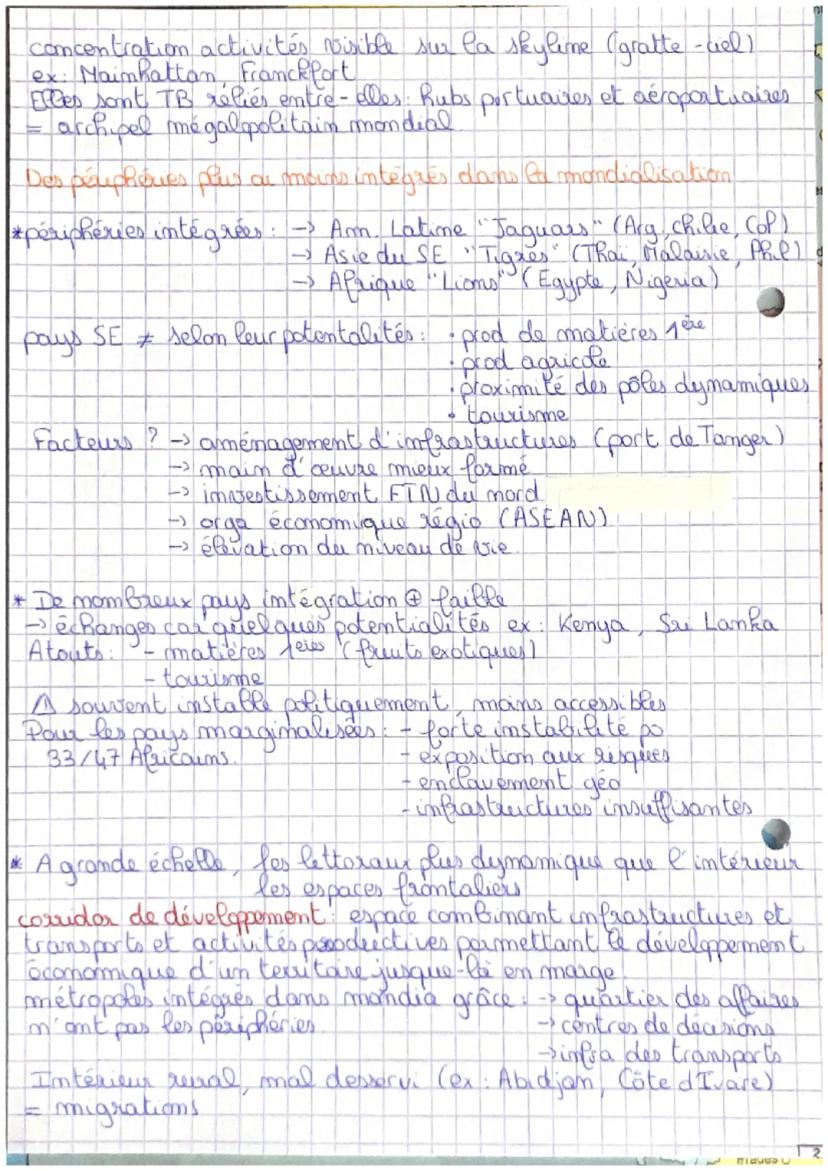 concentration activités visible sur la skyline (gratte-ciel)
ex: Mainhattan, Franckfort
Elles sont TB réliés entre-elles: hubs portuaires et aéroportuaires
= archipel mégalopolitain mondial
Des périphéries plus ou moins intégrés dans la mondialisation
*périphéries intégrées: -> Am. Latine "Jaguars" (Arg, chilie, Col)
-> Asie du SE "Tigres" (Thaï, Malaisie, Phil)
-> Afrique "Lions" (Egypte, Nigeria)
pays SE ≠ selon leur potentalités: • prod de matières 1ère
• prod agricole
• proximité des pôles dynamiques
• tourisme
Facteurs ? -> aménagement d'infrastructures (port de Tanger)
-> main d'œuvre mieux formé
-> investissement FTN du nord
-> orga économique régio (ASEAN)
-> élévation du niveau de vie
* De nombreux pays intégration ⊕ faible
-> échanges car quelques potentialités ex: Kenya, Sri Lanka
Atouts: - matières 1eres (fruits exotiques)
- tourisme
⚠ souvent instable politiquement, moins accessibles
Pour les pays marginalisées: - forte instabilité po
33/47 Africains.
- exposition aux risques
- enclavement géo
- infrastructures insuffisantes
* A grande échelle, les littoraux plus dynamique que l'intérieur
les espaces frontaliers
corridor de développement: espace combinant infrastructures et
transports et activités productives parmettant le développement
économique d'un territoire jusque-là en marge
métropoles intégrés dans mondia grâce: -> quartier des affaires
n'ont pas les périphéries.
-> centres de décisions
-> infra des transports
Intérieur rural, mal desservi (ex: Abidjan, Côte d'Ivoire)
= migrations
2